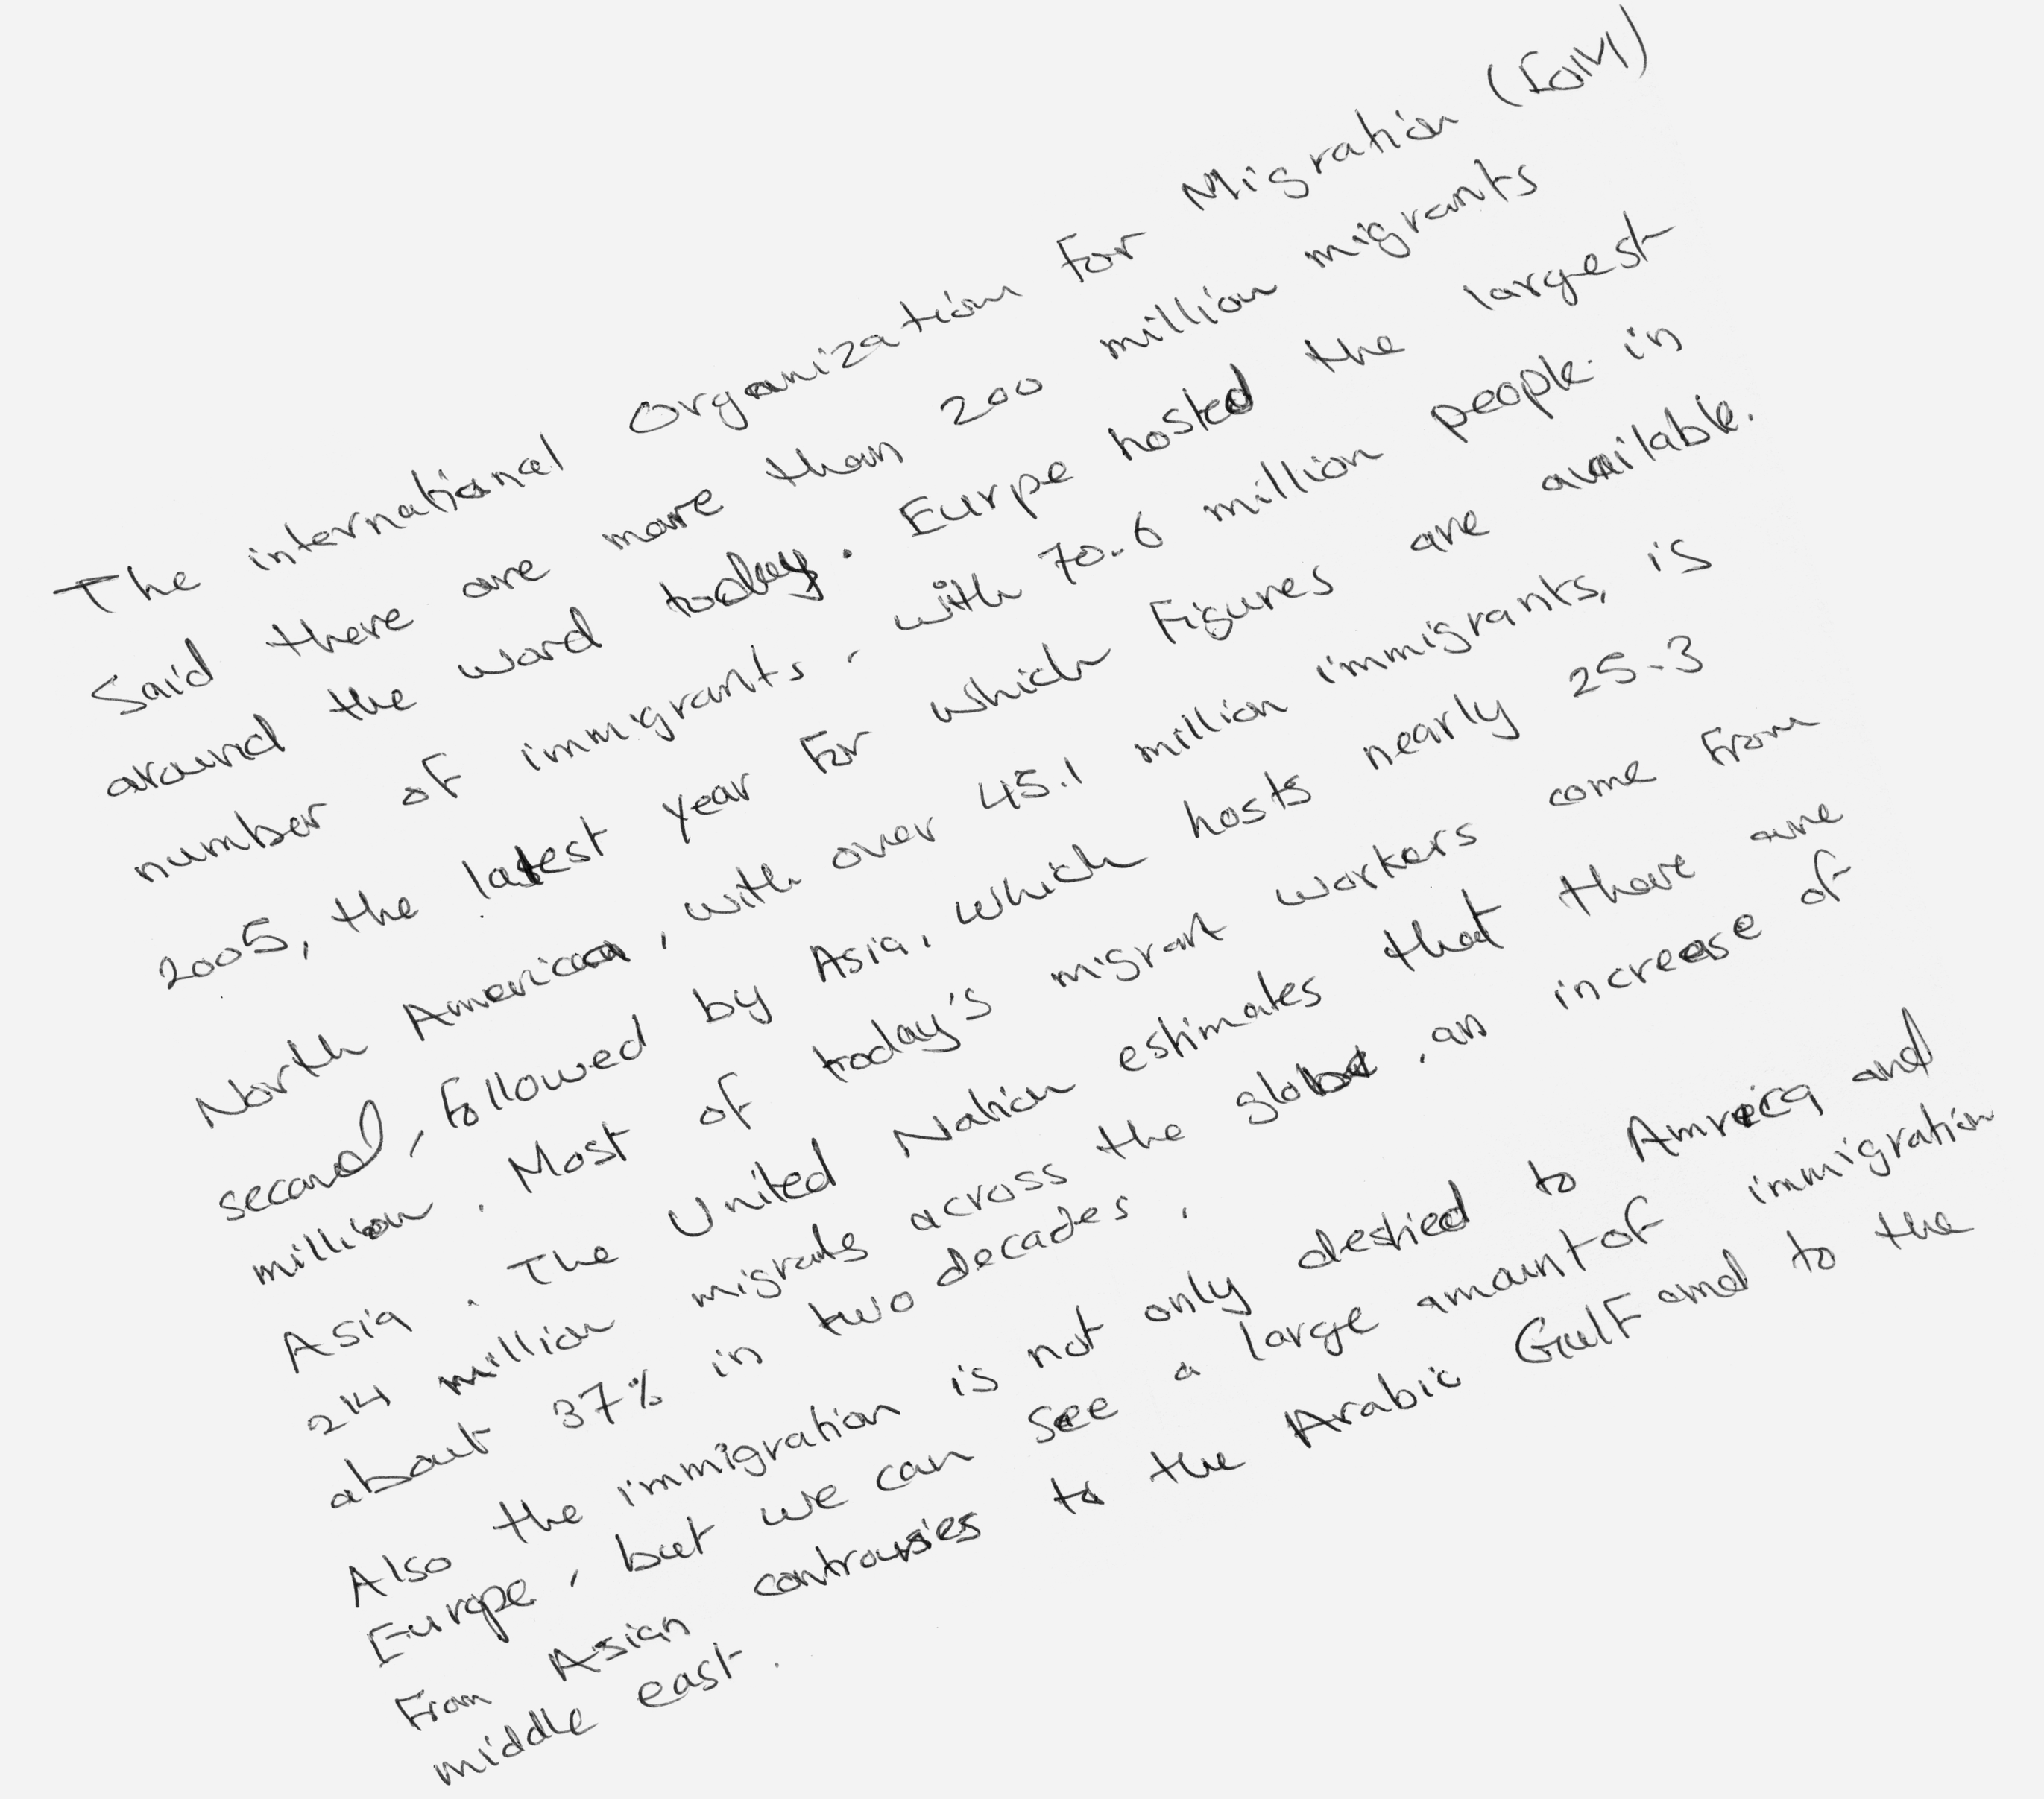 The international Organization For Migration (IOM)
Said there are more than 200 million migrants
around the word today. Eurpe hosted the largest
number of immigrants, with 70.6 million people in
2005, the latest year For which Figures are available.
North American, with over 45.1 million immigrants, is
second, Followed by Asia, which hosts nearly 25.3
million. Most of today's migrant workers come From
Asia. The United Nation estimates that there are
214 million migrats across the globe, an increase of
about 37% in two decades.
Also the immigration is not only destied to Amreica and
Europe, but we can see a large amount of immigration
From Asian controusies to the Arabic Gulf and to the
middle east.